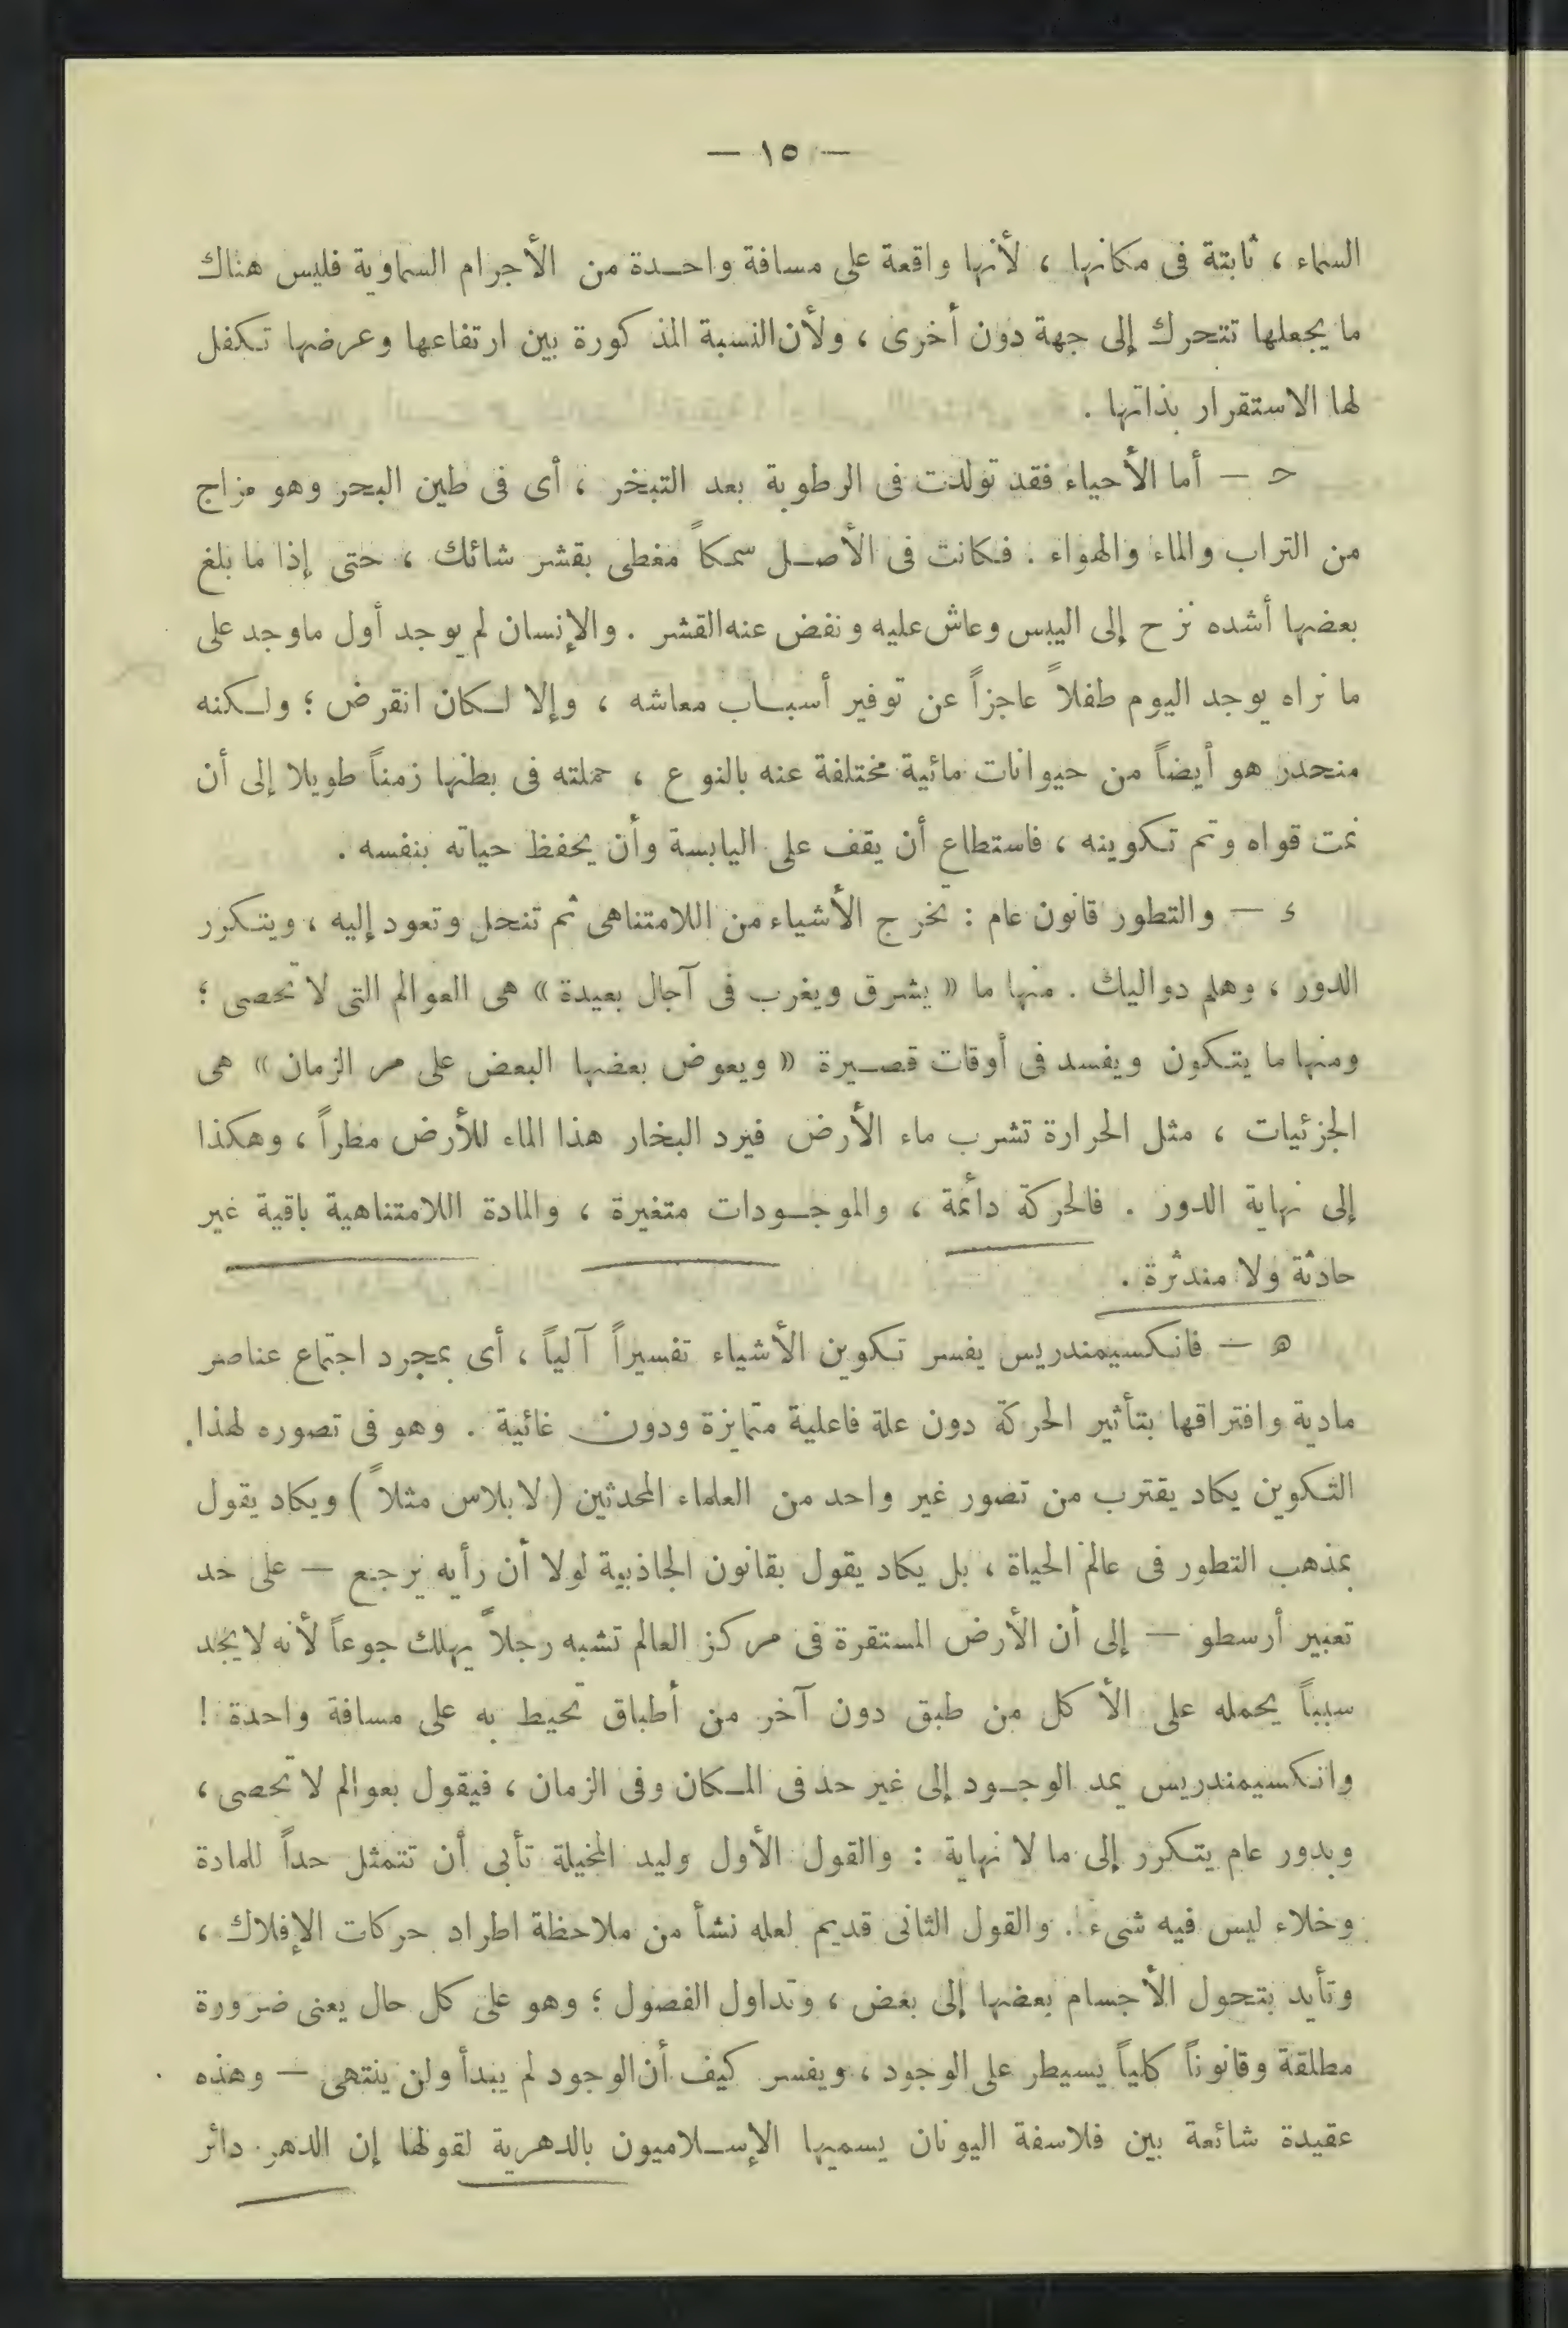 — ١٥ —
السماء ، ثابتة فى مكانها ، لأنها واقعة على مسافة واحدة من الأجرام السماوية فليس هناك
ما يجعلها تتحرك إلى جهة دون أخرى ، ولأن النسبة المذكورة بين ارتفاعها وعرضها تكفل
لها الاستقرار بذاتها .
ح — أما الأحياء فقد تولدت فى الرطوبة بعد التبخر ، أى فى طين البحر وهو مزاج
من التراب والماء والهواء . فكانت فى الأصل سمكاً مغطى بقشر شائك ، حتى إذا ما بلغ
بعضها أشده نزح إلى اليبس وعاش عليه ونفض عنه القشر . والإنسان لم يوجد أول ماوجد على
ما نراه يوجد اليوم طفلاً عاجزاً عن توفير أسباب معاشه ، وإلا لكان انقرض ؛ ولكنه
منحدر هو أيضاً من حيوانات مائية مختلفة عنه بالنوع ، حملته فى بطنها زمناً طويلا إلى أن
نمت قواه وتم تكوينه ، فاستطاع أن يقف على اليابسة وأن يحفظ حياته بنفسه .
ء — والتطور قانون عام : تخرج الأشياء من اللامتناهى ثم تنحل وتعود إليه ، ويتكرر
الدور ، وهلم دواليك . منها ما « يشرق ويغرب فى آجال بعيدة » هى العوالم التى لا تحصى ؛
ومنها ما يتكون ويفسد فى أوقات قصيرة « ويعوض بعضها البعض على مر الزمان » هى
الجزئيات ، مثل الحرارة تشرب ماء الأرض فيرد البخار هذا الماء للأرض مطراً ، وهكذا
إلى نهاية الدور . فالحركة دائمة ، والموجودات متغيرة ، والمادة اللامتناهية باقية غير
حادثة ولا مندثرة .
ه — فانكسيمندريس يفسر تكوين الأشياء تفسيراً آلياً ، أى بمجرد اجتماع عناصر
مادية وافتراقها بتأثير الحركة دون علة فاعلية متمايزة ودون غائية . وهو فى تصوره لهذا
التكوين يكاد يقترب من تصور غير واحد من العلماء المحدثين ( لابلاس مثلاً ) ويكاد يقول
بمذهب التطور فى عالم الحياة ، بل يكاد يقول بقانون الجاذبية لولا أن رأيه يرجع — على حد
تعبير أرسطو — إلى أن الأرض المستقرة فى مركز العالم تشبه رجلاً يهلك جوعاً لأنه لايجد
سبباً يحمله على الأكل من طبق دون آخر من أطباق تحيط به على مسافة واحدة !
وانكسيمندريس يمد الوجود إلى غير حد فى المكان وفى الزمان ، فيقول بعوالم لا تحصى ،
وبدور عام يتكرر إلى ما لا نهاية : والقول الأول وليد المخيلة تأبى أن تتمثل حداً للمادة
وخلاء ليس فيه شىء . والقول الثانى قديم لعله نشأ من ملاحظة اطراد حركات الإفلاك ،
وتأيد بتحول الأجسام بعضها إلى بعض ، وتداول الفصول ؛ وهو على كل حال يعنى ضرورة
مطلقة وقانوناً كلياً يسيطر على الوجود ، ويفسر كيف أن الوجود لم يبدأ ولن ينتهى — وهذه
عقيدة شائعة بين فلاسفة اليونان يسميها الإسلاميون بالدهرية لقولها إن الدهر دائر